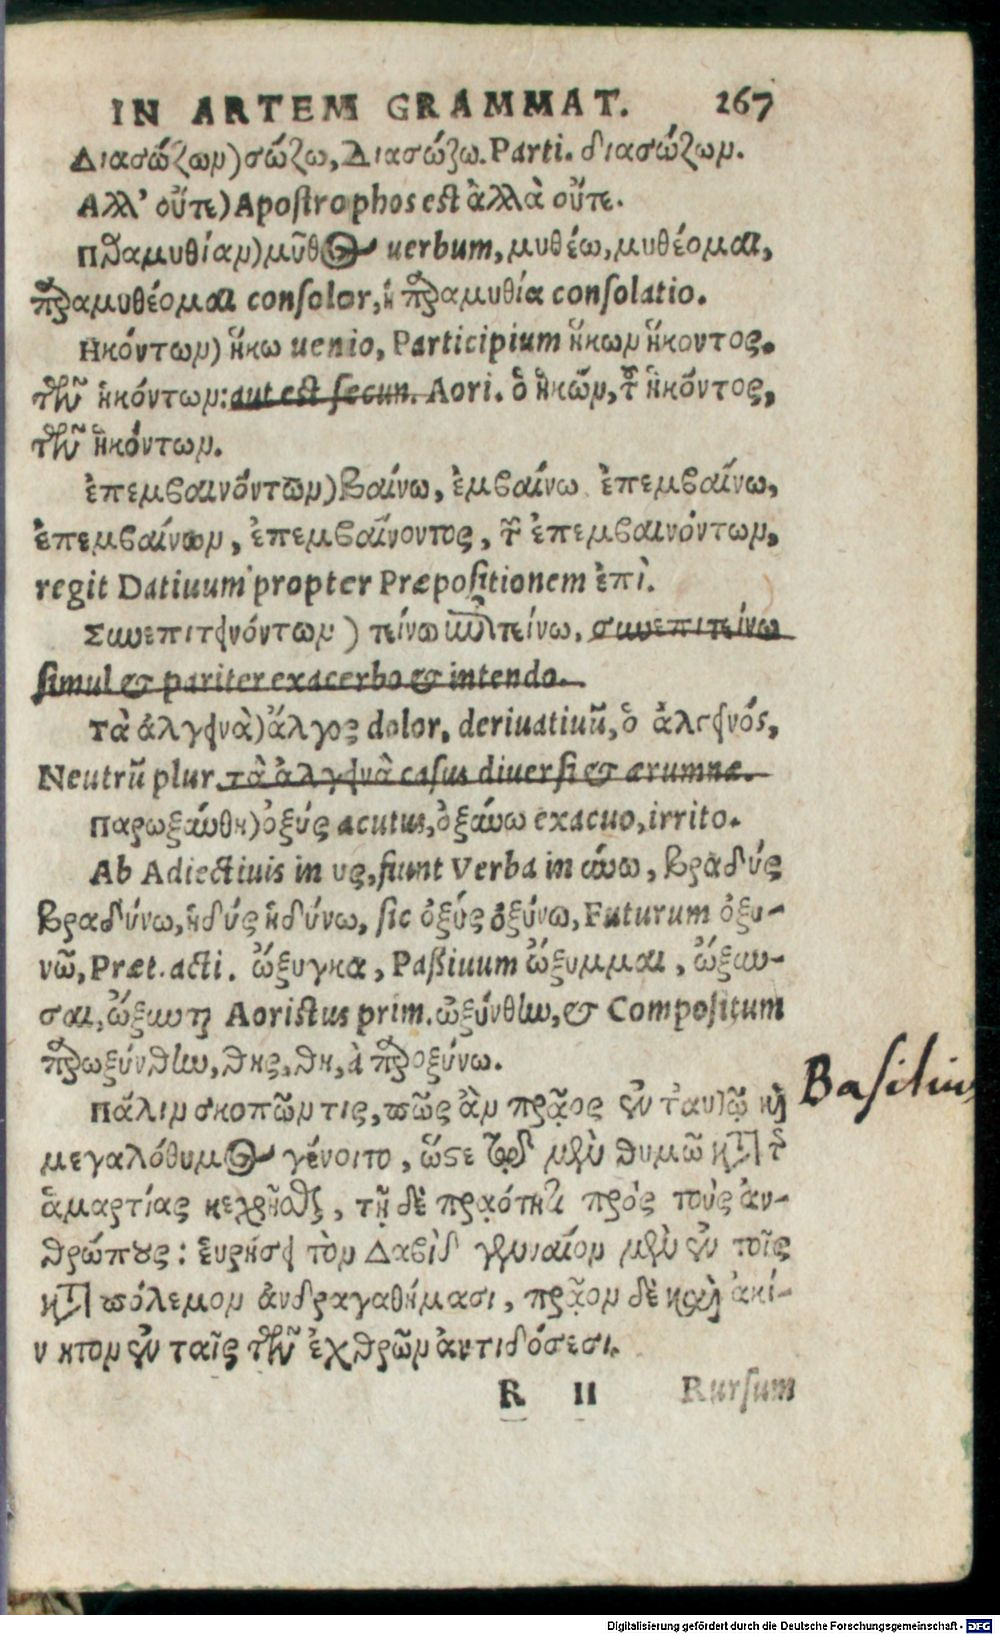 IN ARTEM GRAMMAT. 267
Διασώζων) σώζω, Διασώζω. Parti. διασώζων.
Αλλ' οὔτε) Apostrophos est ἀλλὰ οὔτε.
Παραμυθίαν) μῦθος uerbum, μυθέω, μυθέομαι,
παραμυθέομαι consolor, ἡ παραμυθία consolatio.
Ηκόντων) ἥκω uenio, Participium ἥκων ἥκοντος.
τῶν ἡκόντων: aut est secun. Aori. ὁ ἡκὼν, τοῦ ἡκόντος,
τῶν ἡκόντων.
ἐπεμβαινόντων) βαίνω, ἐμβαίνω ἐπεμβαίνω,
ἐπεμβαίνων, ἐπεμβαίνοντος, τῶν ἐπεμβαινόντων,
regit Datiuum propter Præpositionem ἐπὶ.
Συνεπιτεινόντων) τείνω τείνω, συνεπιτείνω
simul & pariter exacerbo & intendo.
τὰ ἀλγεινὰ) ἄλγος dolor, deriuatiuũ, ὁ ἀλγεινός,
Neutrũ plur. τὰ ἀλγεινὰ casus diuersi & ærumnæ.
Παρωξύνθη) ὀξύς acutus, ὀξύνω exacuo, irrito.
Ab Adiectiuis in υς, fiunt Verba in ύνω, βραδύς
βραδύνω, ἡδύς ἡδύνω, sic ὀξύς ὀξύνω, Futurum ὀξυ-
νῶ, Præt. acti. ὤξυγκα, Passiuum ὤξυμμαι, ὤξυν-
σαι, ὤξυνται Aoristus prim. ὠξύνθην, & Compositum
παρωξύνθην, θης, θη, à παροξύνω.
Πάλιν σκοπῶν τις, πῶς ἂν πρᾷος ἐν ταυτῷ καὶ
μεγαλόθυμος γένοιτο, ὥστε τῷ μὲν θυμῷ κατὰ τῆς
ἁμαρτίας κεχρῆσθαι, τῇ δὲ πρᾳότητι πρὸς τοὺς ἀν-
θρώπους: εὑρήσει τὸν Δαβὶδ γενναῖον μὲν ἐν τοῖς
κατὰ πόλεμον ἀνδραγαθήμασι, πρᾷον δὲ καὶ ἀκί-
νητον ἐν ταῖς τῶν ἐχθρῶν ἀντιδόσεσι.
R II Rursum
Basilius
Digitalisierung gefördert durch die Deutsche Forschungsgemeinschaft - DFG